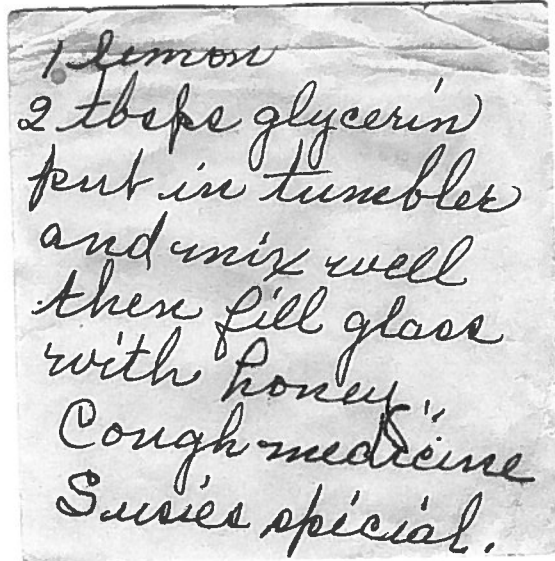 1 lemon
2 tbsps glycerin
put in tumbler
and mix well
then fill glass
with honey.
Cough medicine
Susies special.